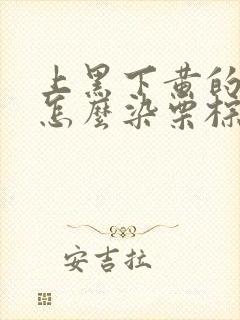 上黑下黄的
怎麼染栗棕
安吉拉